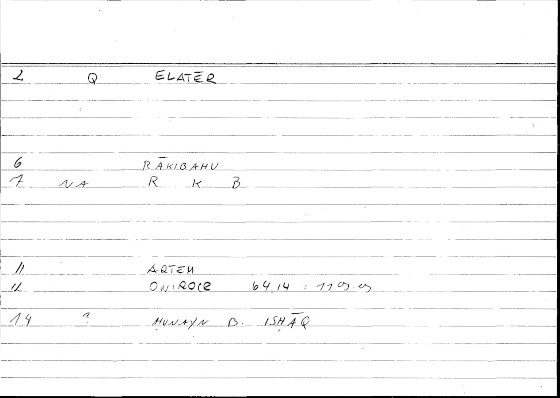 2 Q ELATĒR
6 RĀKIBAHU
7 NA R K B
11 ARTEM
12 ONIROCR 64.14 : 119.9
14 ? ḤUNAYN B. ISḤĀQ